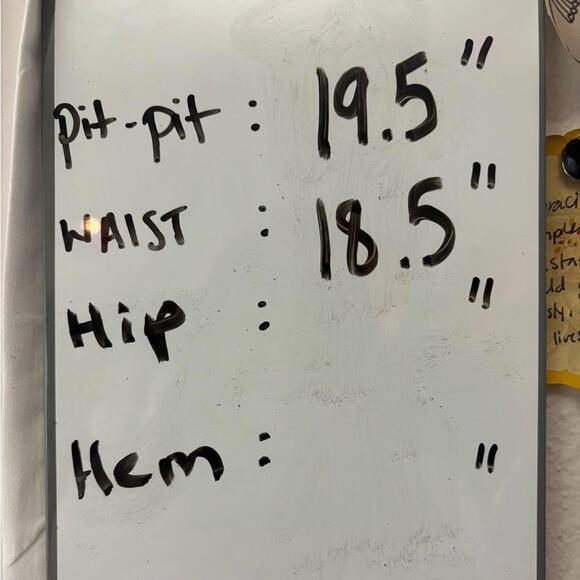 pit-pit : 19.5"
WAIST : 18.5"
Hip : "
Hem : "